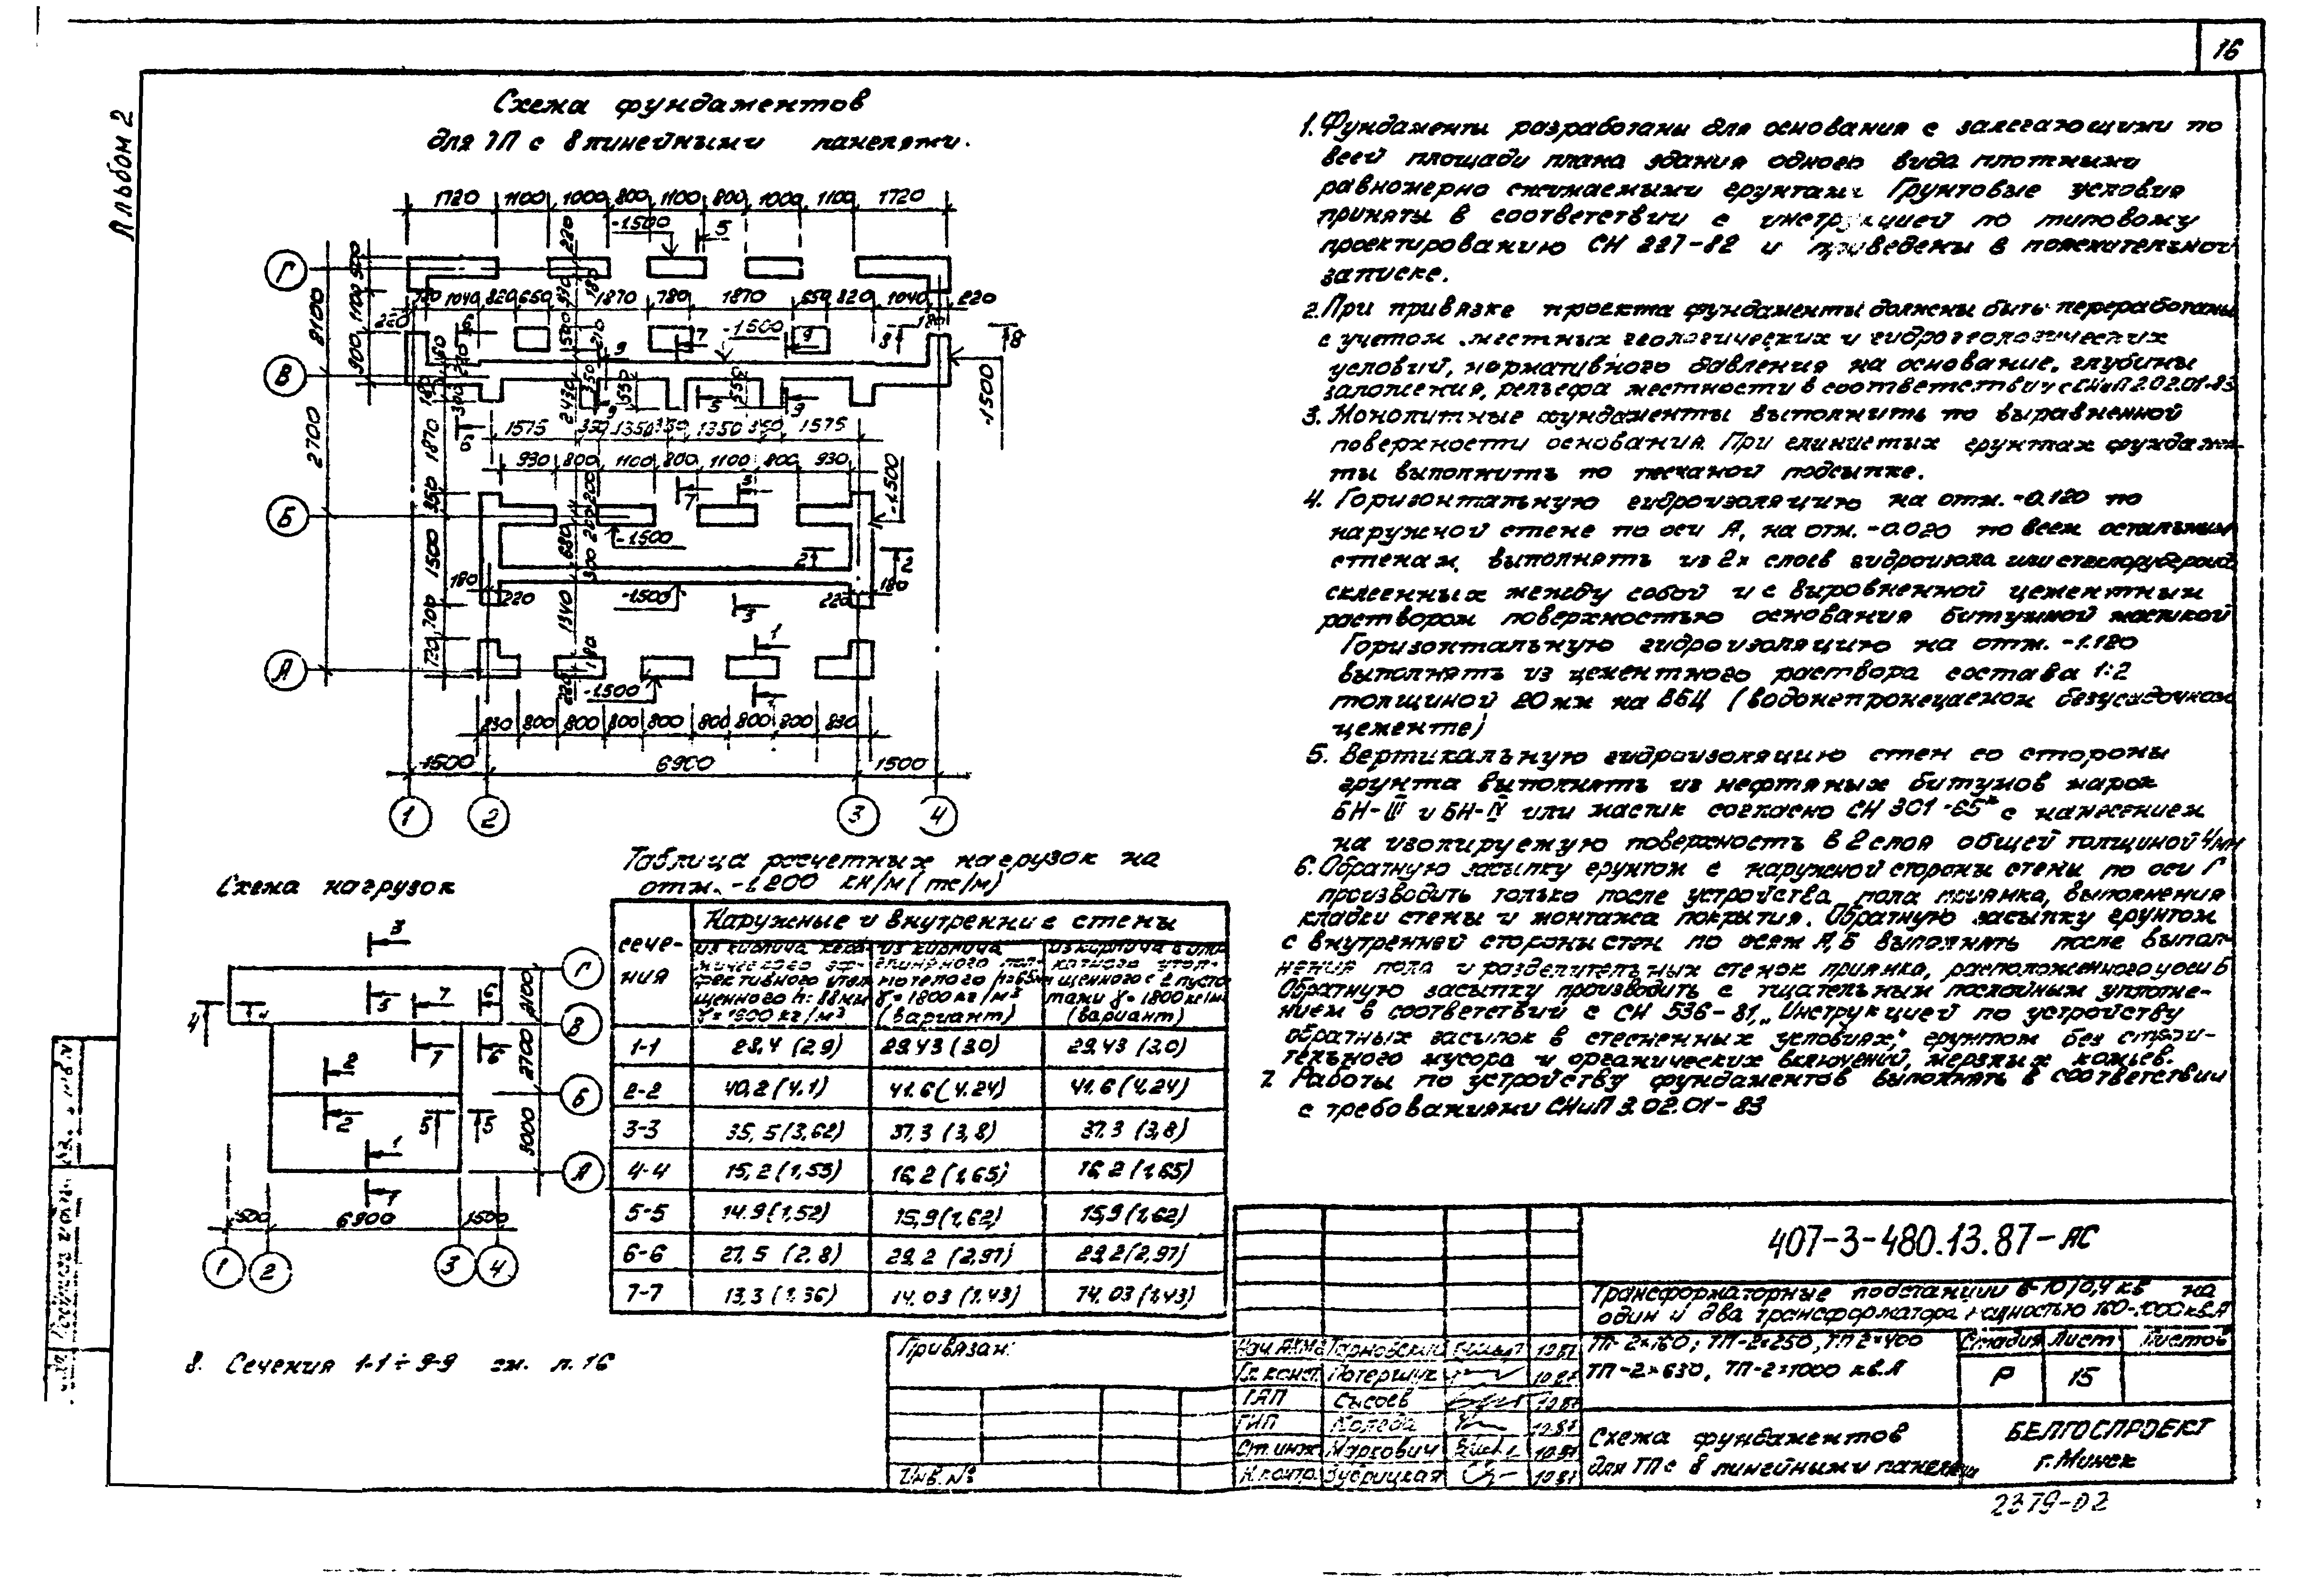 16
Альбом 2
Схема фундаментов
для ТП с 8 линейными панелями.
1720 1100 1000 800 1100 800 1000 1100 1720
-1.500
5
Г
1040 820 650 1870 780 1870 550 820 1040 220
-1.500
8100
В
-1.500
2700
1575 350 1350 350 1350 350 1575
930 800 1100 800 1100 800 930
-1.500
Б
-1.500
180 220 -1.500 220 180
А
-1.500
830 800 800 800 800 800 800 800 830
1500 6900 1500
1 2 3 4
1. Фундаменты разработаны для основания с залегающими по
всей площади плана здания одного вида плотными
равномерно сжимаемыми грунтами Грунтовые условия
приняты в соответствии с инструкцией по типовому
проектированию СН 227-82 и приведены в пояснительной
записке.
2. При привязке проекта фундаменты должны быть переработаны
с учетом местных геологических и гидрогеологических
условий, нормативного давления на основание, глубины
заложения, рельефа местности в соответствии с СНиП 2.02.01-83
3. Монолитные фундаменты выполнить по выравненной
поверхности основания. При глинистых грунтах фундамен-
ты выполнить по песчаной подсыпке.
4. Горизонтальную гидроизоляцию на отм. -0.120 по
наружной стене по оси А, на отм. -0.020 по всем остальным
стенам, выполнять из 2х слоев гидроизола или стеклорубероида
склеенных между собой и с выровненной цементным
раствором поверхностью основания битумной мастикой
Горизонтальную гидроизоляцию на отм. -1.120
выполнять из цементного раствора состава 1:2
толщиной 20 мм на ВБЦ (водонепроницаемом безусадочном
цементе)
5. Вертикальную гидроизоляцию стен со стороны
грунта выполнять из нефтяных битумов марок
БН-III и БН-IV или мастик согласно СН 301-65* с нанесением
на изолируемую поверхность в 2 слоя общей толщиной 4мм
6. Обратную засыпку грунтом с наружной стороны стены по оси Г
производить только после устройства пола приямка, выполнения
кладки стены и монтажа покрытия. Обратную засыпку грунтом
с внутренней стороны стен по осям А, Б выполнять после выпол-
нения пола и разделительных стенок приямка, расположенного у оси Б
Обратную засыпку производить с тщательным послойным уплотне-
нием в соответствий с СН 536-81 „Инструкцией по устройству
обратных засыпок в стесненных условиях", грунтом без строи-
тельного мусора и органических включений, мерзлых комьев.
7. Работы по устройству фундаментов выполнять в соответствии
с требованиями СНиП 3.02.01-83
Схема нагрузок
3
5 7 6
4
2 7 6
2 5 5
1
1
Г
В
Б
А
2100 2700 3000
1500 6900 1500
1 2 3 4
Таблица расчетных нагрузок на
отм. -1.200 кн/м (тс/м)
сече-
ния
Наружные и внутренние стены
из кирпича кера-
мического эф-
фективного утол
щенного h=88мм
γ=1600 кг/м³
из кирпича
глиняного пол-
нотелого h=65мм
γ=1800 кг/м³
(вариант)
из кирпича
щенного с 2 пусто
тами γ=1800 кг/м³
(вариант)
1-1 28,4 (2,9) 29.43 (3.0) 29.43 (3.0)
2-2 40,2 (4.1) 41.6 (4.24) 41.6 (4.24)
3-3 35,5 (3,62) 37.3 (3,8) 37.3 (3,8)
4-4 15,2 (1,55) 16,2 (1,65) 16,2 (1,65)
5-5 14.9 (1,52) 15,9 (1,62) 15,9 (1,62)
6-6 27,5 (2.8) 29,2 (2,97) 29,2 (2,97)
7-7 13,3 (1.36) 14.03 (1.43) 14.03 (1,43)
8. Сечения 1-1÷9-9 см. л. 16
Привязан:
Инв. №
Нач. АКМ2 Тарновский 10.87
Гл. конст. Потершук 10.87
ГАП Сысоев 10.87
ГИП Коледа 10.87
Ст. инж. Маркович 10.87
Н. контр. Зубрицкая 10.87
407-3-480.13.87-АС
Трансформаторные подстанции 6-10/0,4 кВ на
один и два трансформатора мощностью 160-1000 кВ.А
ТП-2×160; ТП-2×250, ТП 2×400
ТП-2×630, ТП-2×1000 кв.А
Стадия Лист Листов
Р 15
Схема фундаментов
для ТП с 8 линейными панелями
БЕЛГОСПРОЕКТ
г. Минск
2379-02